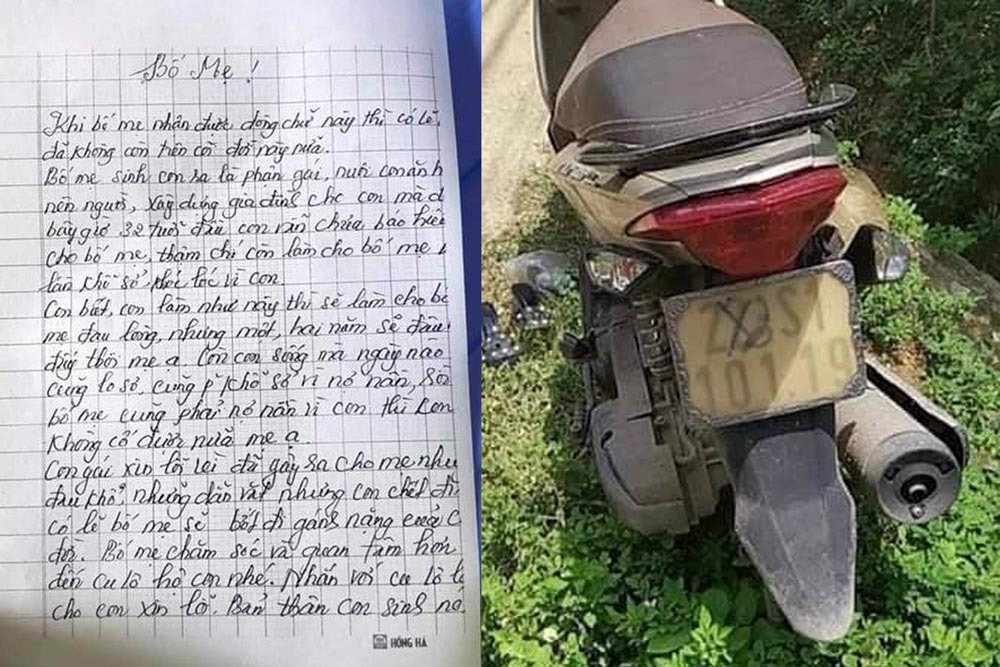 Bố Mẹ !
Khi bố mẹ nhận được dòng chữ này thì có lẽ
đã không còn trên cõi đời này nữa.
Bố mẹ sinh con ra là phận gái, nuôi con ăn h
nên người, xây dựng gia đình cho con mà d
bây giờ 32 tuổi đầu con vẫn chưa báo hiếu
cho bố mẹ, thậm chí còn làm cho bố mẹ
lần khổ sở, khóc lóc vì con.
Con biết, con làm như này thì sẽ làm cho bố
mẹ đau lòng, nhưng một, hai năm sẽ đâu
đấy thôi mẹ ạ. Còn con sống mà ngày nào
cũng lo sợ, cũng phải khổ sở vì nợ nần,
bố mẹ cũng phải nợ nần vì con thì con
không cố được nữa mẹ ạ.
Con gái xin lỗi vì đã gây sa cho mẹ nhiều
đau khổ, những dằn vặt nhưng con chết đi
có lẽ bố mẹ sẽ bớt đi gánh nặng cuả C
đời. Bố mẹ chăm sóc và quan tâm hơn
đến cu lô hộ con nhé. Nhắn với cu lô
cho con xin lỗi. Bản thân con sinh nó
HỒNG HÀ
S1
101 19